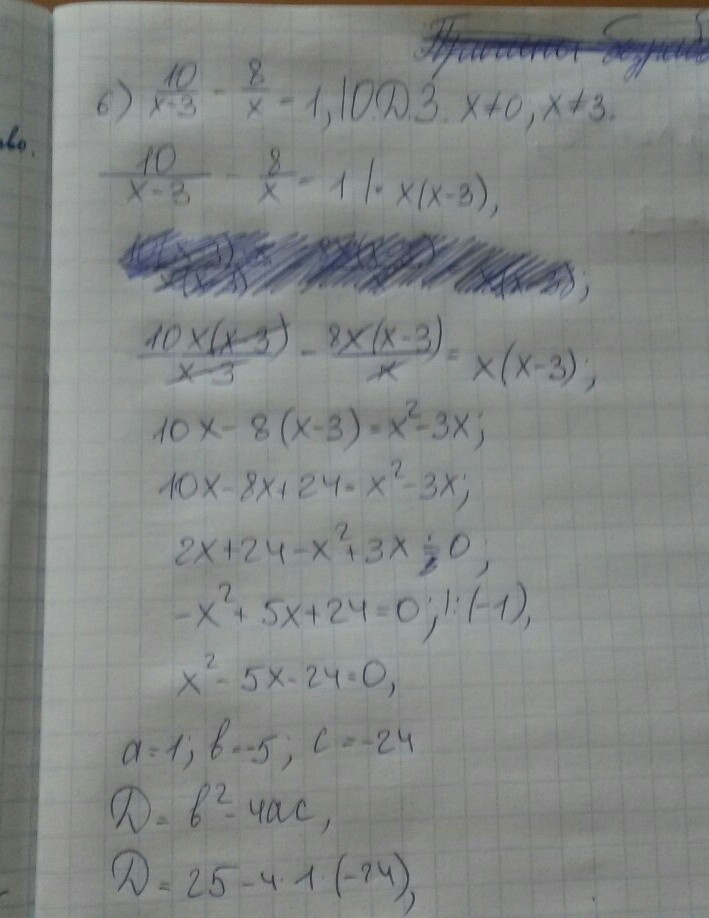 б) 10/(x-3) - 8/x = 1, | О.Д.З. x≠0, x≠3.
10/(x-3) - 8/x = 1 |· x(x-3),
10x(x-3)/(x-3) - 8x(x-3)/x = x(x-3);
10x - 8(x-3) = x² - 3x;
10x - 8x + 24 = x² - 3x;
2x + 24 - x² + 3x = 0;
-x² + 5x + 24 = 0; |: (-1),
x² - 5x - 24 = 0,
a = 1; b = -5; c = -24
D = b² - 4ac,
D = 25 - 4·1·(-24),